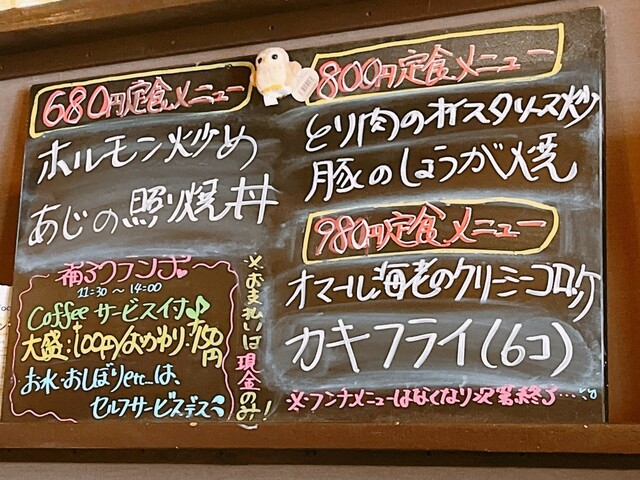 680円定食メニュー
ホルモン炒め
あじの照り焼丼
800円定食メニュー
とり肉のオイスターソース炒
豚のしょうが焼
980円定食メニュー
オマール海老のクリーミーコロッケ
カキフライ(6コ)
※ランチメニューはなくなり次第終了…
ランチ
11:30～14:00
Coffeeサービス付♪
大盛:100円/おかわり:150円
お水・おしぼりetc…は、
セルフサービスデス
※お支払いは現金のみ!